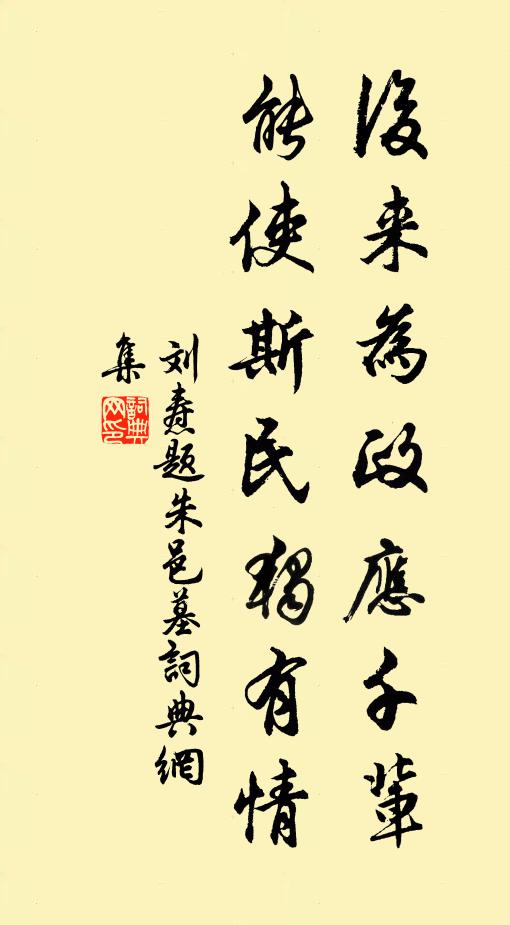 後来為政應千輩
能使斯民獨有情
刘焘題朱邑墓詞典網
集
詞典
网印